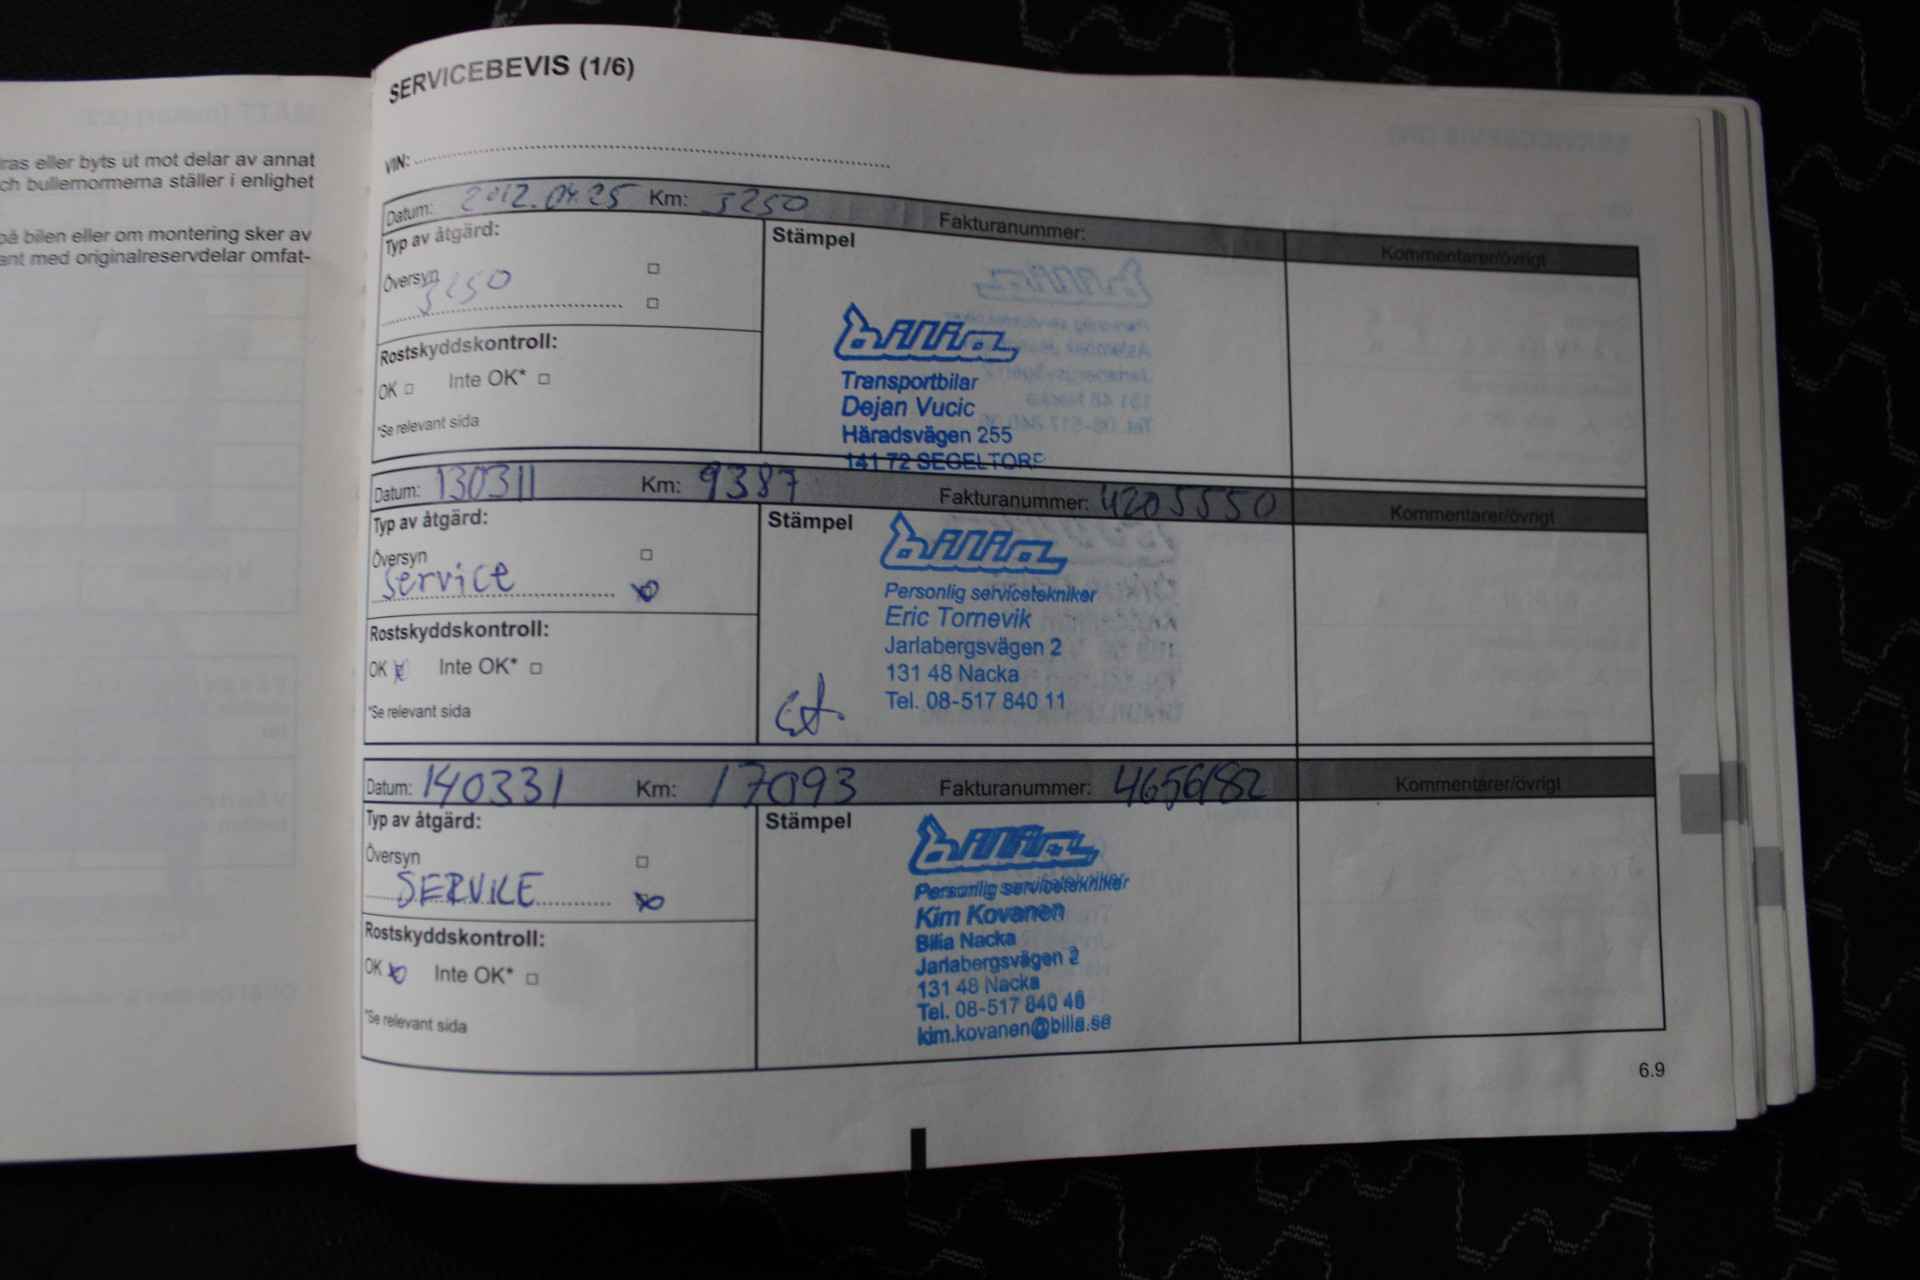 ras eller byts ut mot delar av annat
ch bullernormerna ställer i enlighet
på bilen eller om montering sker av
ant med originalreservdelar omfat-
SERVICEBEVIS (1/6)
VIN:
Datum: 2012.04.25 Km: 5250 Fakturanummer:
Kommentarer/övrigt
Typ av åtgärd:
Översyn
5250
Rostskyddskontroll:
OK Inte OK*
*Se relevant sida
Stämpel
bilia
Transportbilar
Dejan Vucic
Häradsvägen 255
141 72 SEGELTORP
Datum: 130311 Km: 9387 Fakturanummer: 4205550
Kommentarer/övrigt
Typ av åtgärd:
Översyn
service
Rostskyddskontroll:
OK Inte OK*
*Se relevant sida
Stämpel
bilia
Personlig servicetekniker
Eric Tornevik
Jarlabergsvägen 2
131 48 Nacka
Tel. 08-517 840 11
Datum: 140331 Km: 17093 Fakturanummer: 4656182
Kommentarer/övrigt
Typ av åtgärd:
Översyn
SERVICE
Rostskyddskontroll:
OK Inte OK*
*Se relevant sida
Stämpel
bilia
Personlig servicetekniker
Kim Kovanen
Bilia Nacka
Jarlabergsvägen 2
131 48 Nacka
Tel. 08-517 840 46
kim.kovanen@bilia.se
6.9